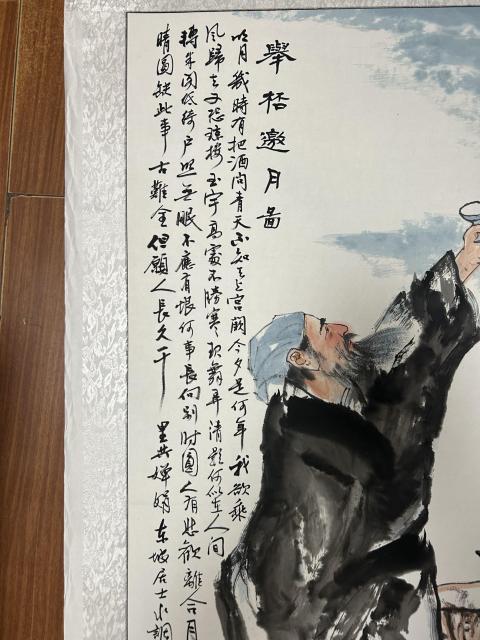 舉杯邀月圖
明月幾時有把酒問青天不知天上宮闕今夕是何年我欲乘
風歸去又恐瓊樓玉宇高處不勝寒起舞弄清影何似在人間
轉朱閣低綺戶照無眠不應有恨何事長向別時圓人有悲歡離合月
晴圓缺此事古難全但願人長久千里共嬋娟東坡居士水調